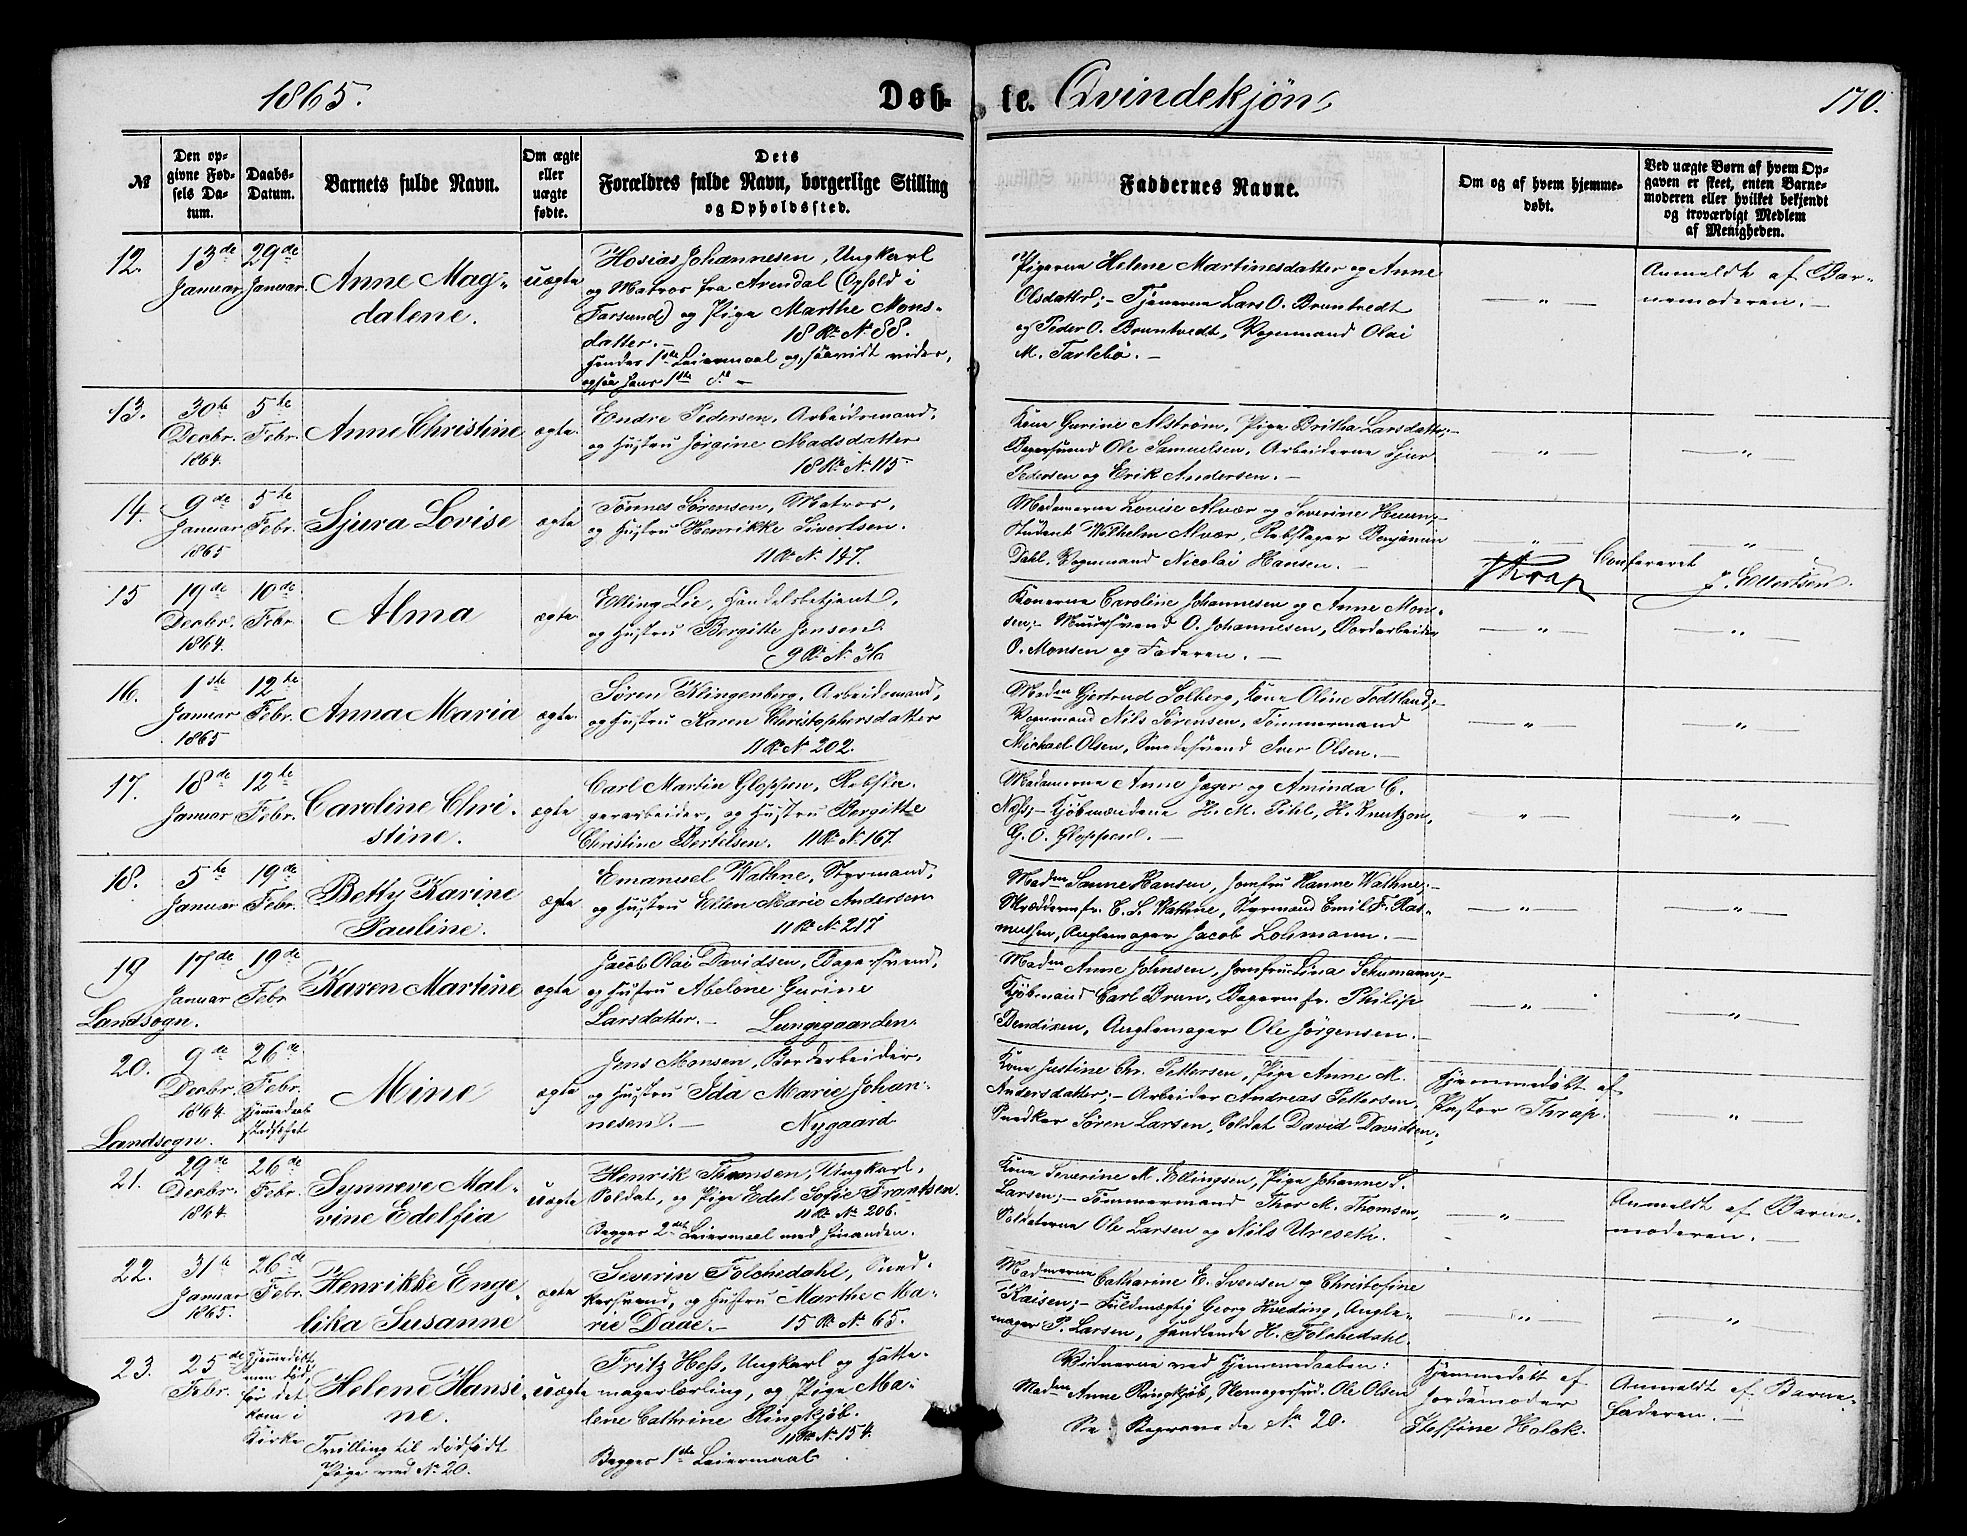 1865.
Døb-
te.
Qvindekjøn
170.
№
Den op-
givne Fød-
sels Da-
tum.
Daabs-
Datum.
Barnets fulde Navn.
Om ægte
eller
uægte
fødte.
Dets
Forældres fulde Navn, borgerlige Stilling
og Opholdssted.
Faddernes Navne.
Om og af hvem hjemme-
døbt.
Ved uægte Børn af hvem Op-
gaven er skeet, enten Barne-
moderen eller hvilket bekjendt
og troværdigt Medlem
af Menigheden.
12.
13de
Januar
29de
Januar
Anne Mag-
dalene.
uægte
Hosias Johannesen, Ungkarl
og Matros fra Arendal (Ophold i
Farsund) og Pige Marthe Mons-
datter.
18 R. N. 88.
Hendes 1ste Leiermaal og, saavidt vides,
ogsaa hans 1ste
Pigerne Helene Martinesdatter og Anne
Olsdatter; Tjenerne Lars O. Bruntvedt
og Peder O. Bruntvedt, Vognmand Olai
M. Tarlebø.
Anmeldt af Bar-
nemoderen.
13.
30te
Decbr.
1864.
5te
Febr.
Anne Christine
ægte
Endre Pedersen, Arbeidsmand,
og Hustru Jørgine Madsdatter
18 R. N. 115.
Kone Gurine Alstrøm, Pige Britha Larsdatter;
Bagersvend Ole Samuelsen, Arbeiderne Sjur
Pedersen og Erik Andersen.
14.
9de
Januar
1865
5te
Febr.
Sjura Lovise
ægte
Tønnes Sørensen, Matros,
og Hustru Henrikke Sivertsen.
11 R. N. 147.
Madamerne Lovise Alvær og Severine Huun;
Student Wilhelm Alvær, Rebslager Benjamin
Dahl, Vognmand Nicolai Hansen.
Thrap
Confereret
J. Ellertsen.
15
19de
Decbr.
1864.
10de
Febr.
Alma
ægte
Elling Lie, Handelsbetjent,
og Hustru Bergitte Jensen.
9 R. N.
Konerne Caroline Johannesen og Anne Mon-
sen; Muursvend O. Johannesen, Bordarbeider
O. Monsen og Faderen.
16.
1ste
Januar
1865
12te
Febr.
Anna Maria
ægte
Søren Klingenberg, Arbeidsmand,
og Hustru Karen Christophersdatter
11 R. N. 202.
Madm Gjertrud Solberg, Kone Oline Todtland;
Vognmand Nils Sørensen, Tømmermand
Michael Olsen, Smedesvend Iver Olsen.
17.
18de
Januar
12te
Febr.
Caroline Chri-
stine.
ægte
Carl Martin Gloppen, Rebsla-
gerarbeider, og Hustru Bergitte
Christine Bertelsen. 11 R. N. 167.
Madamerne Anne Jæger og Aminda C.
Næss; Kjøbmændene H. M. Pihl, H. Knutzon,
G. O. Gloppen.
18.
5te
Januar
19de
Febr.
Betty Karine
Pauline.
ægte
Emanuel Wathne, Styrmand,
og Hustru Ellen Marie Andersen
11 R. N. 217
Madm Sanne Hansen, Jomfru Hanne Wathne;
Skræddermstr. E. S. Wathne, Styrmand Emil F. Ras-
mussen, Anglemager Jacob Lohmann.
19
17de
Januar
19de
Febr
Karen Martine
ægte
Landsogn.
Jacob Olai Davidsen, Bagersvend,
og Hustru Abelone Gurine
Larsdatter.
Lungegaarden.
Madm Anne Johnsen, Jomfru Lina Schumann;
Kjøbmand Carl Brun, Bagermstr. Philip
Bendixen, Anglemager Ole Jørgensen.
20.
9de
Decbr.
1864.
26de
Febr.
Hjemmedaab
stadfæstet
Mine
ægte
Landsogn.
Jens Monsen, Bordarbeider,
og Hustru Ida Marie Johan-
nesen.
Nygaard
Kone Justine Chr. Pettersen, Pige Anne M.
Andersdatter; Arbeider Andreas Pettersen,
Snedker Søren Larsen, Soldat David Davidsen;
Hjemmedøbt af
Pastor Thrap.
21.
29de
Decbr.
1864.
26de
Febr.
Synneve Mal-
vine Edelfia
uægte
Henrik Thomsen, Ungkarl,
Soldat, og Pige Edel Sofie Frantsen.
11 R. N. 206.
Begges 2det Leiermaal med hinanden.
Kone Severine M. Ellingsen, Pige Johanne S.
Larsen; Tømmermand Thor M. Thomsen,
Soldaterne Ole Larsen og Nils Urseth.
Anmeldt af Barne-
moderen.
22.
31te
Januar
1865.
26de
Febr.
Henrikke Enge-
lika Susanne
ægte
Severin Folchedahl, Sned-
kersvend, og Hustru Marthe Ma-
rie Daae. 15 R. N. 65.
Madamerne Catharine E. Svensen og Christofine
Kaisen; Fuldmægtig Georg Hveding, Angle-
mager P. Larsen, Handlende H. Folchedahl.
23.
25de
Febr.
Hjemmedøbt,
men død,
før det
kom i
Kirke
Helene Hansi-
ne.
Tvilling til dødfødt
Pige ved N. 20.
uægte
Fritz Hess, Ungkarl og Hatte-
magerlærling, og Pige Ma-
lene Cathrine Ringkjøb.
11 R. N. 154.
Begges 1ste Leiermaal
Vidnerne ved Hjemmedaaben:
Madm Anne Ringkjøb, Skomagersvd. Ole Olsen
Se: Begravede No 20.
Hjemmedøbt af
Jordemoder
Steffine Holck.
Anmeldt af Barne-
faderen.